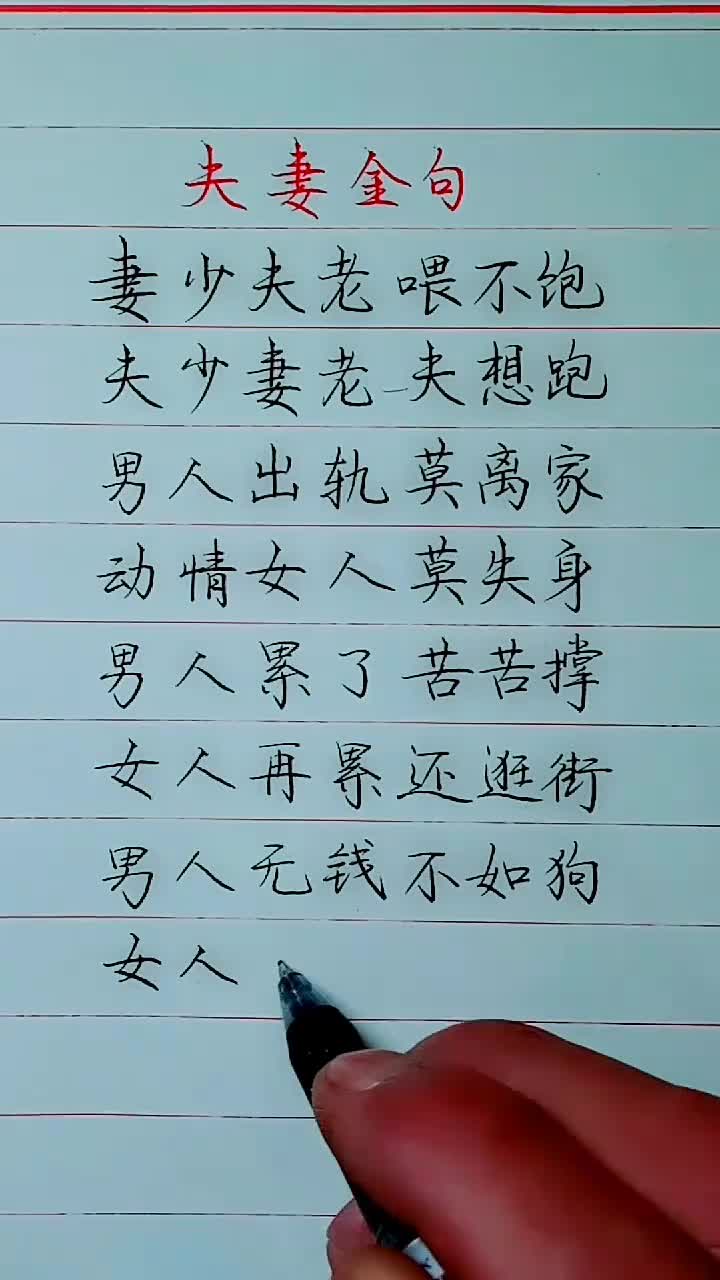 夫妻金句
妻少夫老喂不饱
夫少妻老夫想跑
男人出轨莫离家
动情女人莫失身
男人累了苦苦撑
女人再累还逛街
男人无钱不如狗
女人